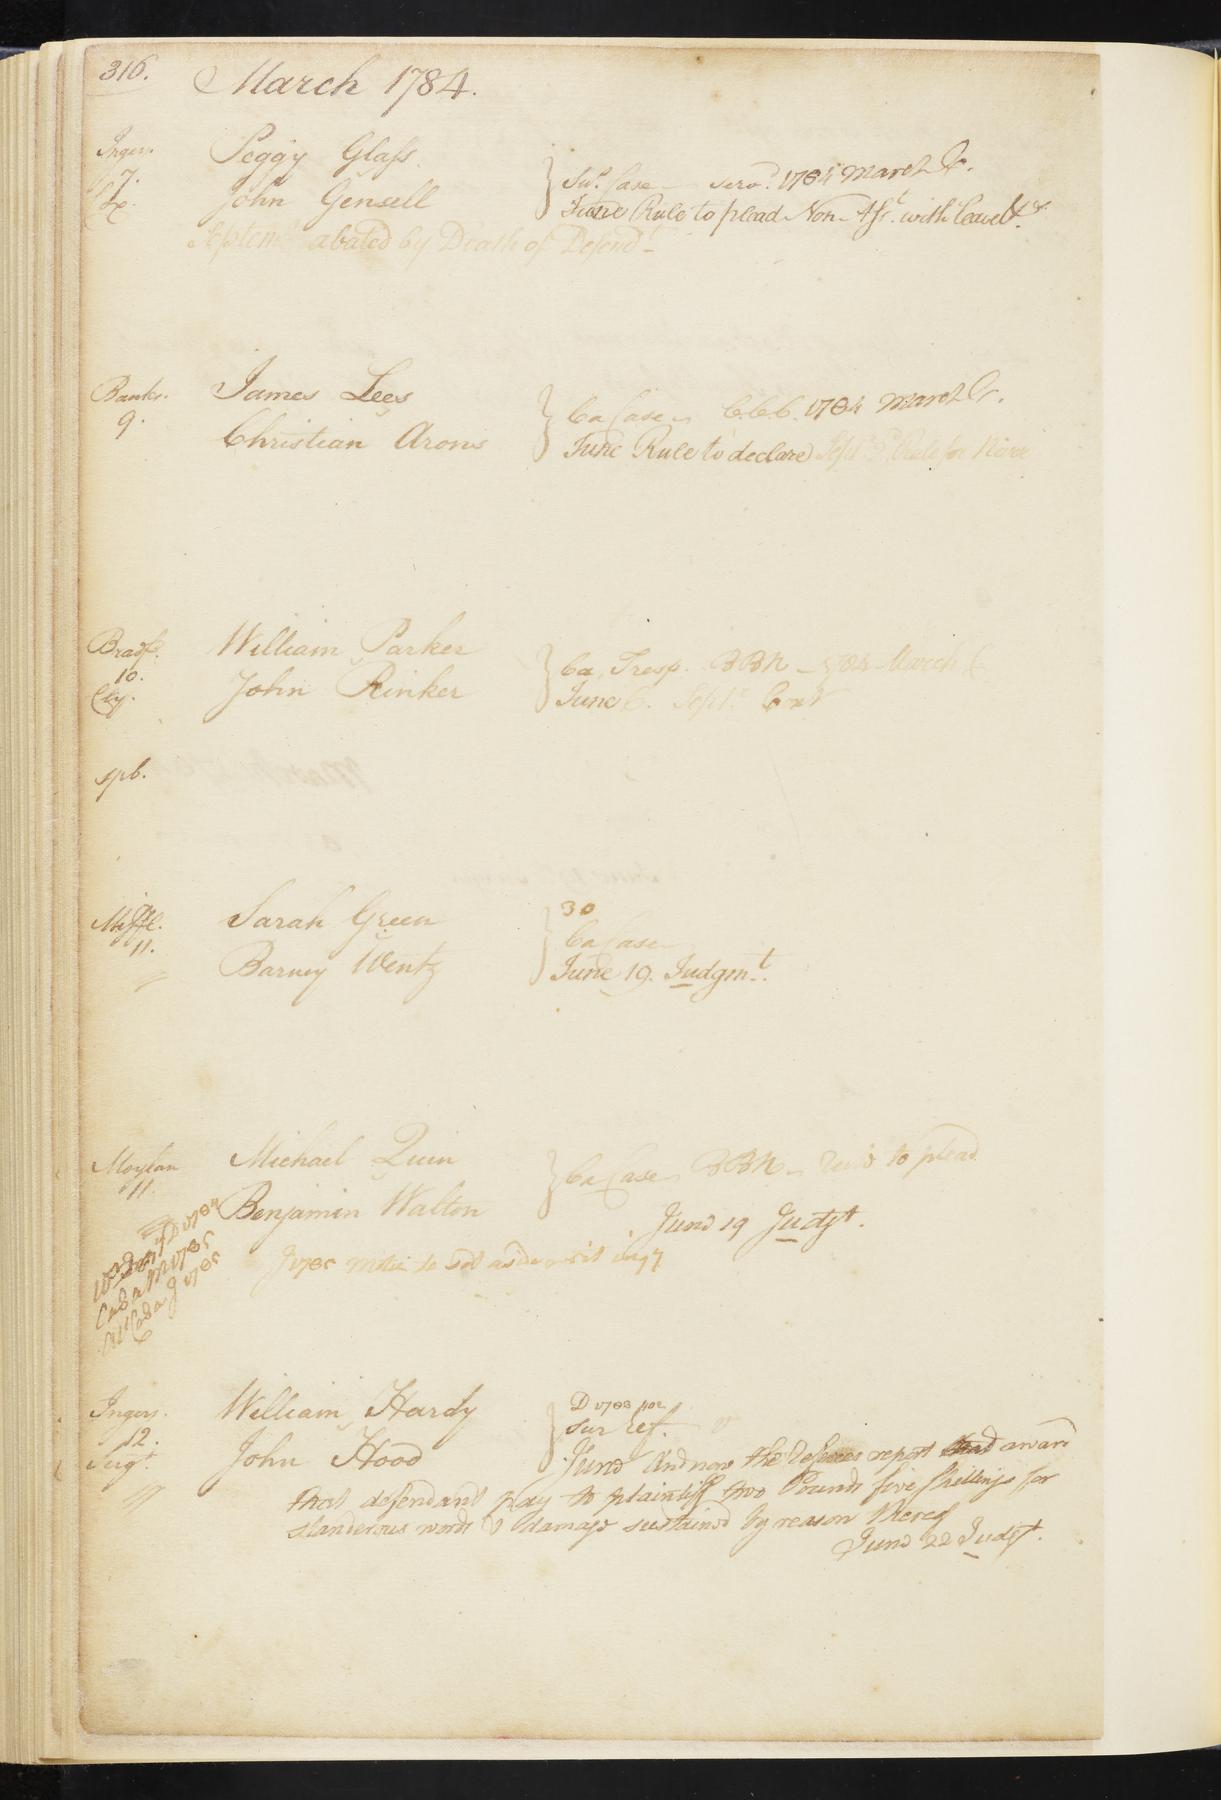 316. March 1784.
Ingers. Peggy Glass
7. Sus. Case servd. 1784 March Cr.
Lx. John Gensell
June Rule to plead Non Ass.t with leave &c
Septem abated by Death of Defend.t
Banks. James Lees
9. Ca Case C.C.C. 1784 March Cr.
Christian Arons
June Rule to declare Sept. Rule for Narr
Bradf. William Parker
10. Ca. Tresp. BBN 1784 March C
Clry. John Rinker
June C. Sept.r Cont
spb.
Miffl. Sarah Green 30
11. Ca Case
Barney Wentz June 19. Judgm.t
Moylan Michael Quin
11. Ca Case BBN Rule to plead
Benjamin Walton June 19 Judgt.
J 1785 motion to set aside writ inqy
D 1784
Casa M 1785
Al Casa J 1785
Ingers. William Hardy D 1783
12. Sur ref.
Sergt. John Hood
June And now the Referees report and award
that defendant pay to plaintiff two Pounds five Shillings for
slanderous words & damage sustained by reason thereof
June 22 Judgt.